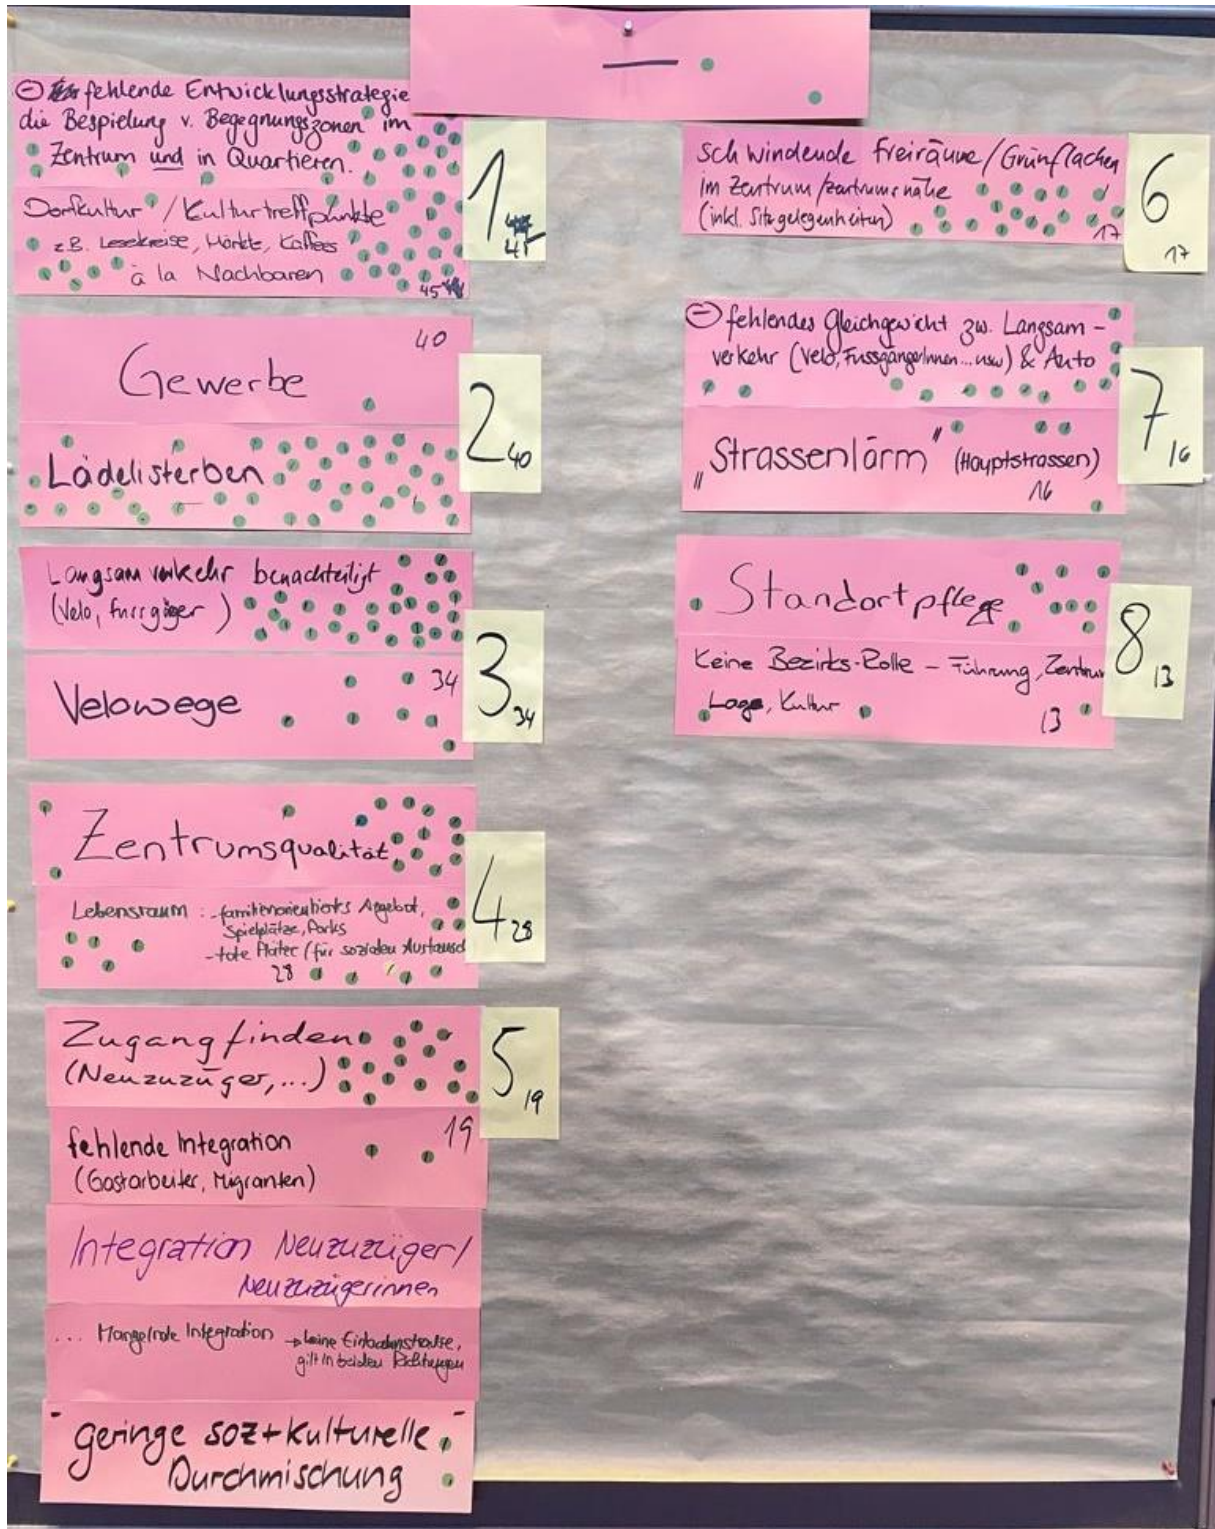 —
⊖ fehlende Entwicklungsstrategie
die Bespielung v. Begegnungszonen im
Zentrum und in Quartieren.
Dorfkultur / Kulturtreffpunkte
z.B. Lesekreise, Märkte, Kaffees
à la Nachbaren
45
1
41
Gewerbe
40
Lädelisterben
2
40
Langsam verkehr benachteiligt
(Velo, fussgäger)
Velowege
34
3
34
Zentrumsqualität
Lebensraum : - familienorientierts Agebot,
Spielplätze, Parks
- tote Plätze (für sozialen Austausch
28
4
28
Zugang finden
(Neuzuzüger, ...)
fehlende Integration
(Gastarbeiter, Migranten)
19
Integration Neuzuzüger/
Neuzuzügerinnen
... Mangelnde Integration → keine Einbahnstrasse,
gilt in beiden Richtungen
- geringe soz + kulturelle -
Durchmischung
5
19
Schwindende Freiräume/Grünflächen
im Zentrum/zentrumsnähe
(inkl. Sitzgelegenheiten)
17
6
17
⊖ fehlendes Gleichgewicht zw. Langsam-
verkehr (Velo, FussgängerInnen...usw) & Auto
"Strassenlärm" (Hauptstrassen)
16
7
16
Standortpflege
Keine Bezirks-Rolle – Führung, Zentrum
Lage, Kultur
13
8
13